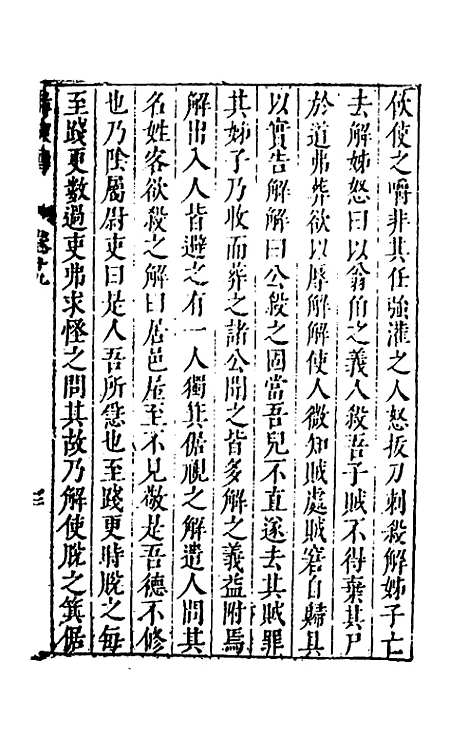 飲使之嚼非其任強灌之人怒拔刀刺殺解姊子亡
去解姊怒曰以翁伯之義人殺吾子賊不得棄其尸
於道弗葬欲以辱解解使人微知賊處賊窘自歸具
以實告解解曰公殺之固當吾兒不直遂去其賊罪
其姊子乃收而葬之諸公聞之皆多解之義益附焉
解出入人皆避之有一人獨箕倨視之解遣人問其
名姓客欲殺之解曰居邑屋至不見敬是吾德不修
也乃陰屬尉吏曰是人吾所急也至踐更時脫之每
至踐更數過吏弗求怪之問其故乃解使脫之箕倨
卷十九
三